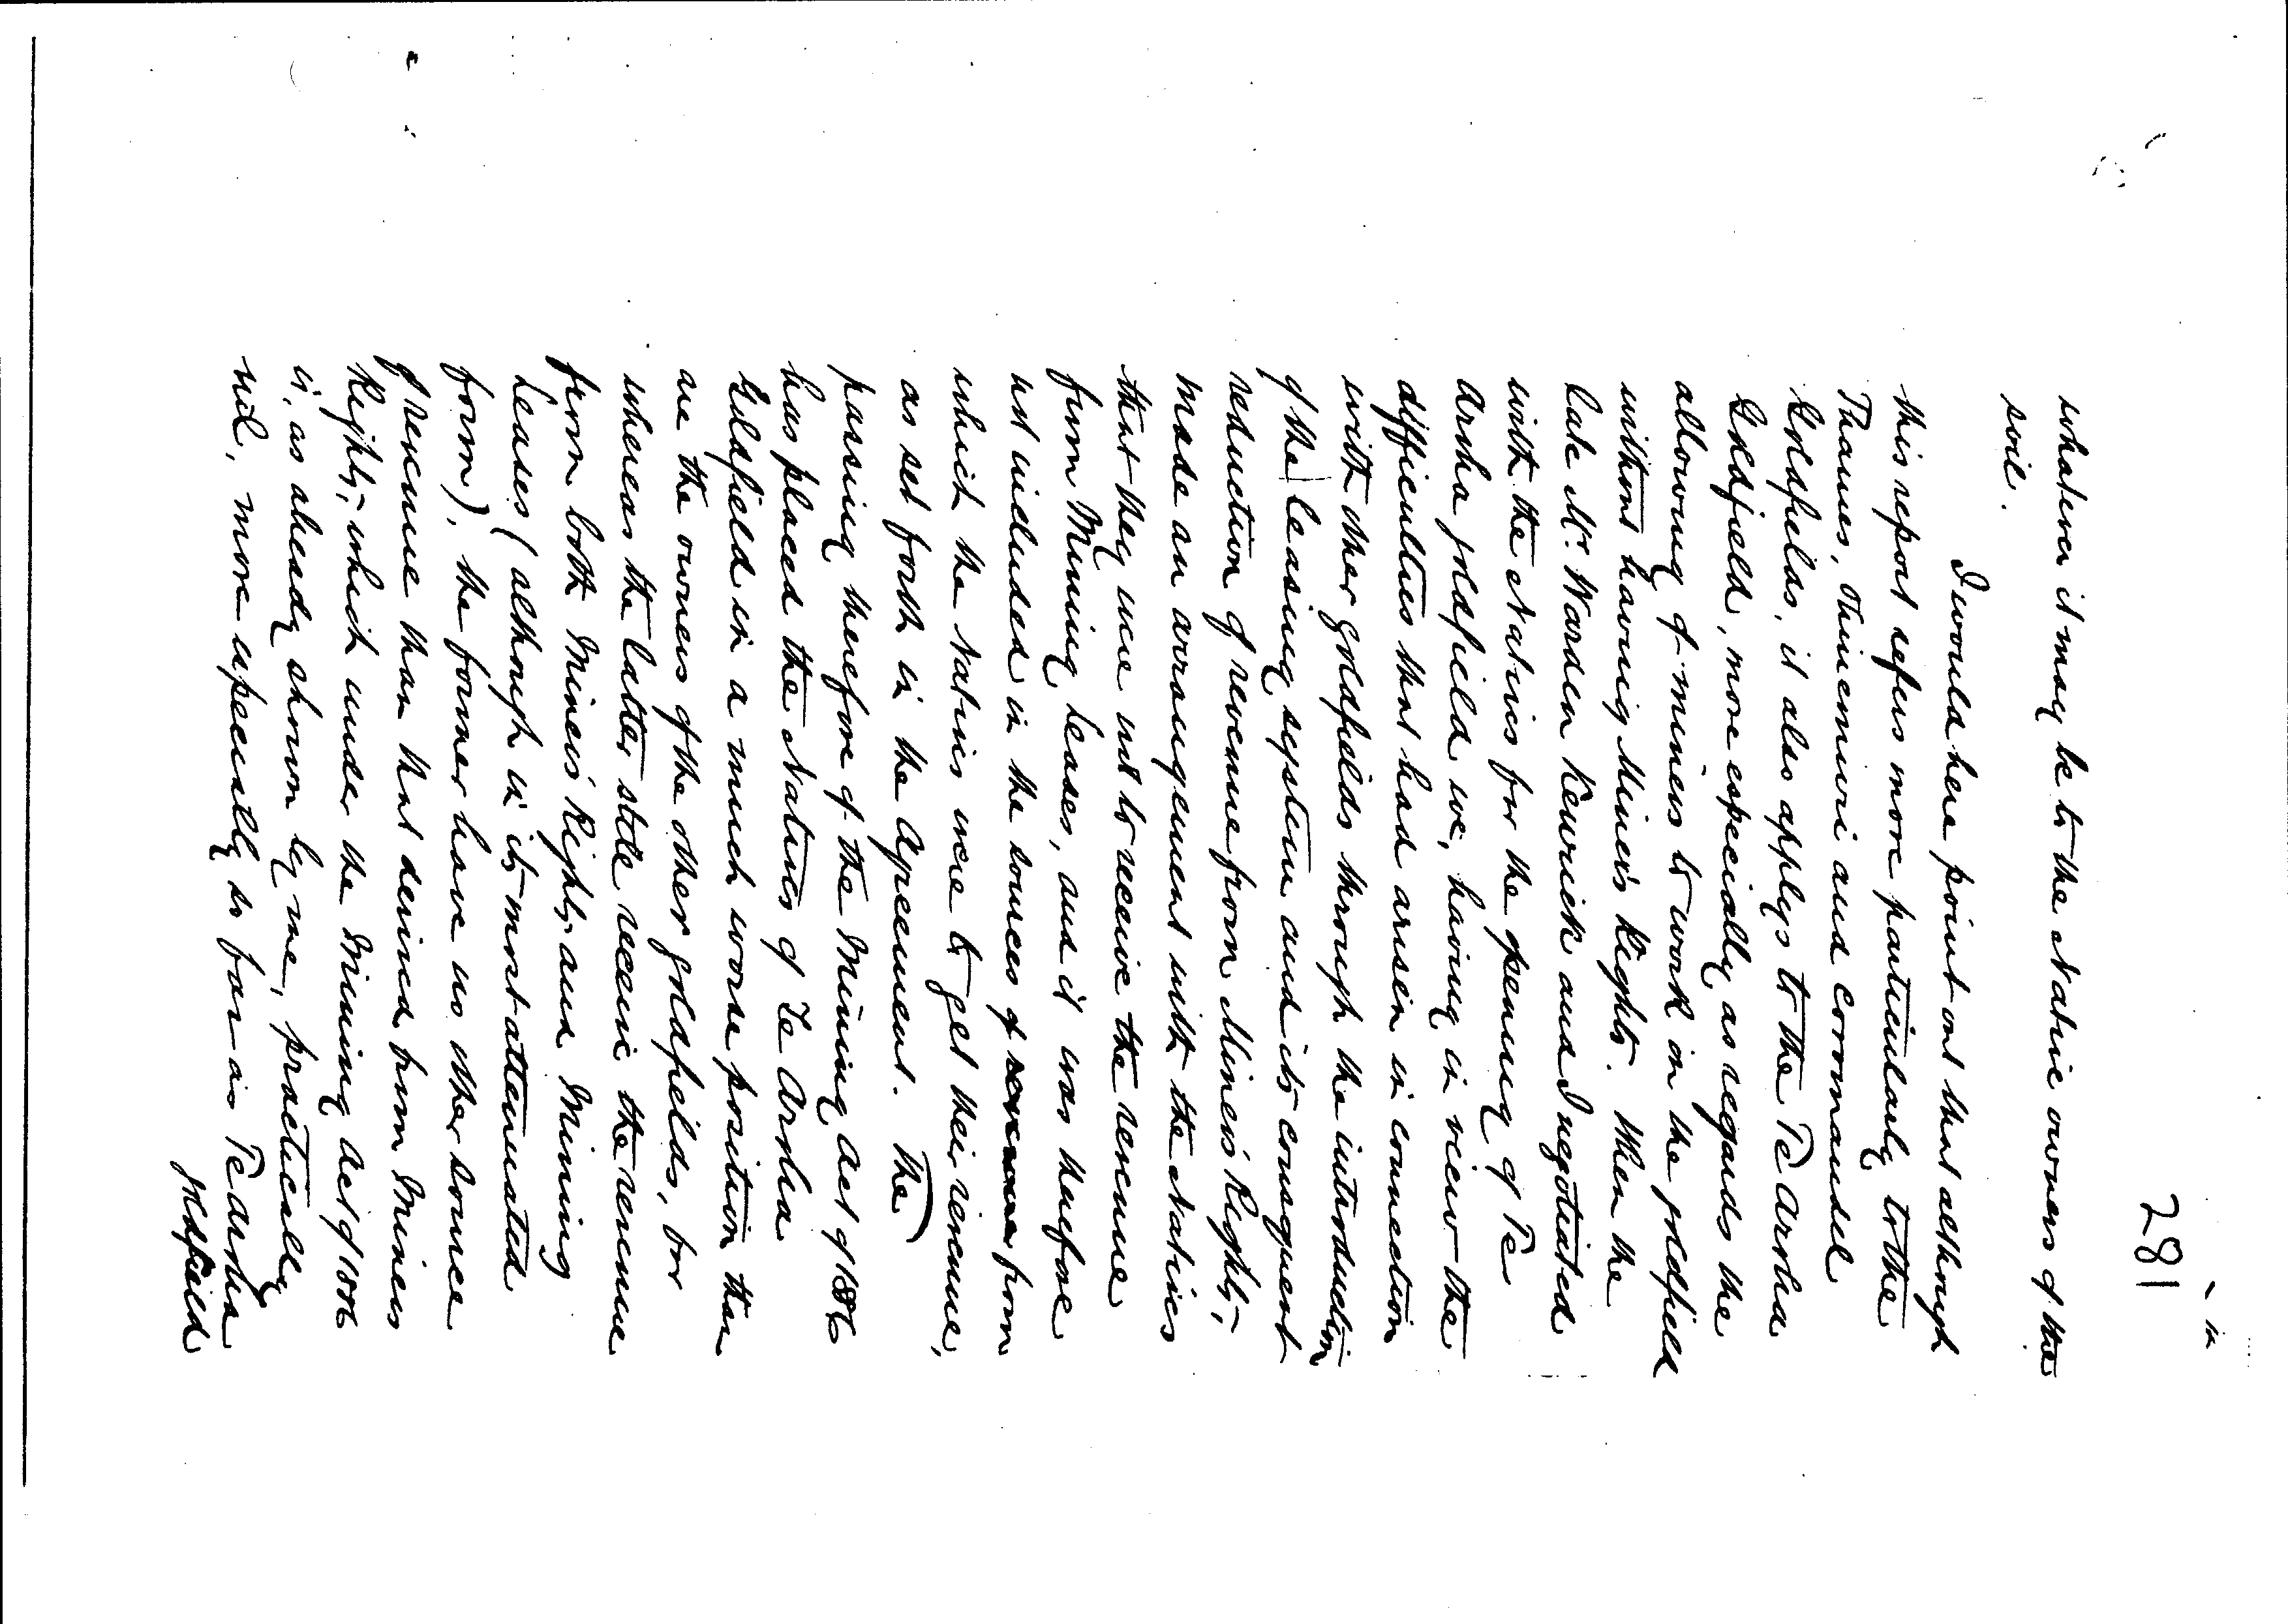 281
whatever it may be to the Native owners of the
soil.
I would here point out that although
this report refers more particularly to the
Thames, Ohinemuri and Coromandel
Goldfields, it also applys to the Te Aroha
Goldfield, more especially as regards the
allowing of miners to work on the goldfield
without having Miner's Rights. When the
late Mr. Warden Kenrick and I negotiated
with the Natives for the opening of Te
Aroha goldfield we, having in view the
difficulties that had arisen in connection
with other goldfields through the introduction
of the leasing system and its consequent
reduction of revenue from Miners' Rights,
made an arrangement with the Natives
that they were not to receive the revenue
from Mining Leases, and it was therefore
not included in the sources of revenue from
which the Natives were to get their revenue,
as set forth in the Agreement. The
passing therefore of the Mining Act of 1886
has placed the Natives of Te Aroha
Goldfield in a much worse position than
are the owners of the other goldfields, for
whereas the latter still receive the revenue
from both Miners' Rights and Mining
Leases (although in its most attenuated
form), the former have no other source
of revenue than that derived from Miners
Rights, which under the Mining Act of 1886
is, as already shown by me, practically
nil, more especially so far as Te Aroha
goldfield